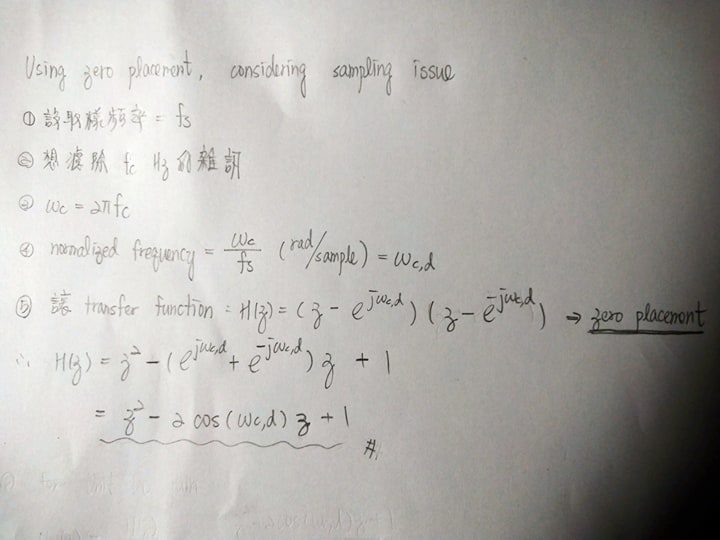 Using zero placement, considering sampling issue
① 該取樣頻率 = fs
② 想濾除 fc Hz 的雜訊
③ ωc = 2πfc
④ normalized frequency = ωc/fs (rad/sample) = ωc,d
⑤ 讓 transfer function = H(z) = (z - e^{jωc,d}) (z - e^{-jωc,d}) → zero placement
∴ H(z) = z² - (e^{jωc,d} + e^{-jωc,d}) z + 1
= z² - 2 cos(ωc,d) z + 1 #